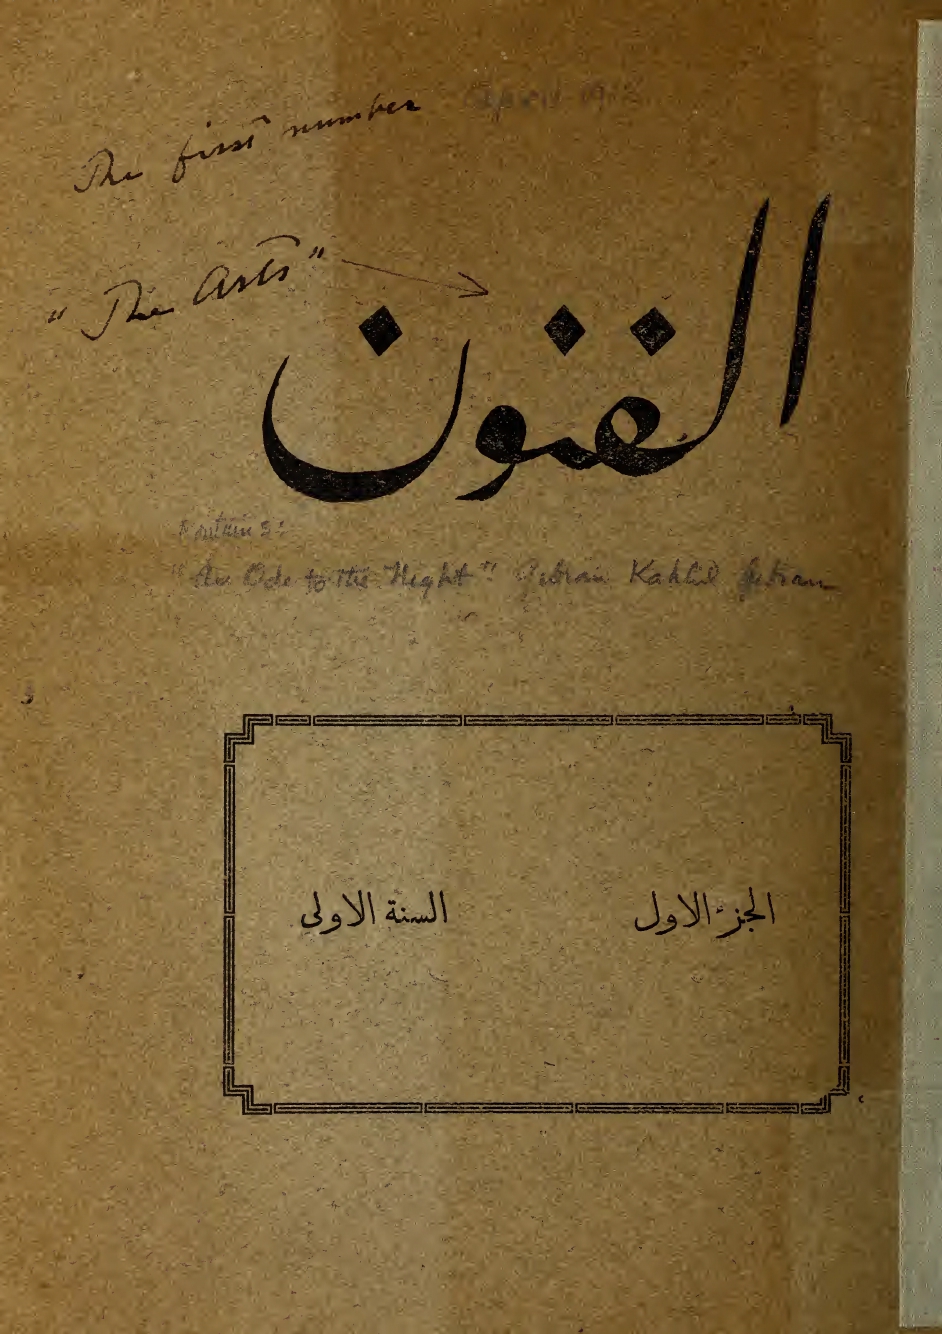 The first number April 1913
"The Arts"
الفنون
Contains:
"An Ode to the Night" Gibran Kahlil Gibran
الجزء الاول
السنة الاولى